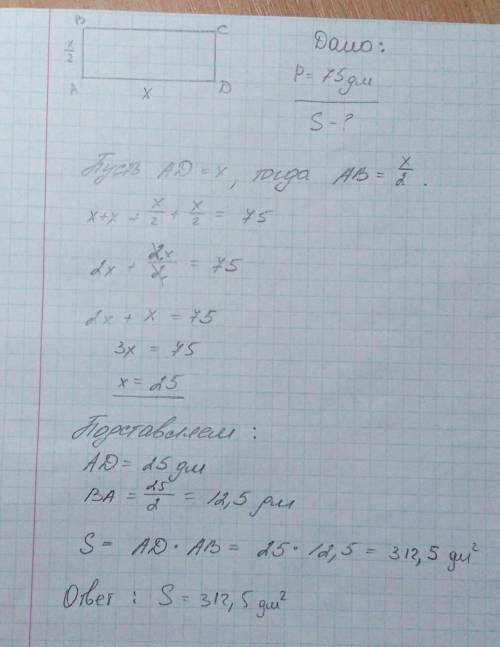 B C
x/2
A x D
Дано:
P = 75 дм
S - ?
Пусть AD = x, тогда AB = x/2.
x+x + x/2 + x/2 = 75
2x + 2x/2 = 75
2x + x = 75
3x = 75
x = 25
Подставляем:
AD = 25 дм
BA = 25/2 = 12,5 дм
S = AD · AB = 25 · 12,5 = 312,5 дм²
Ответ: S = 312,5 дм²